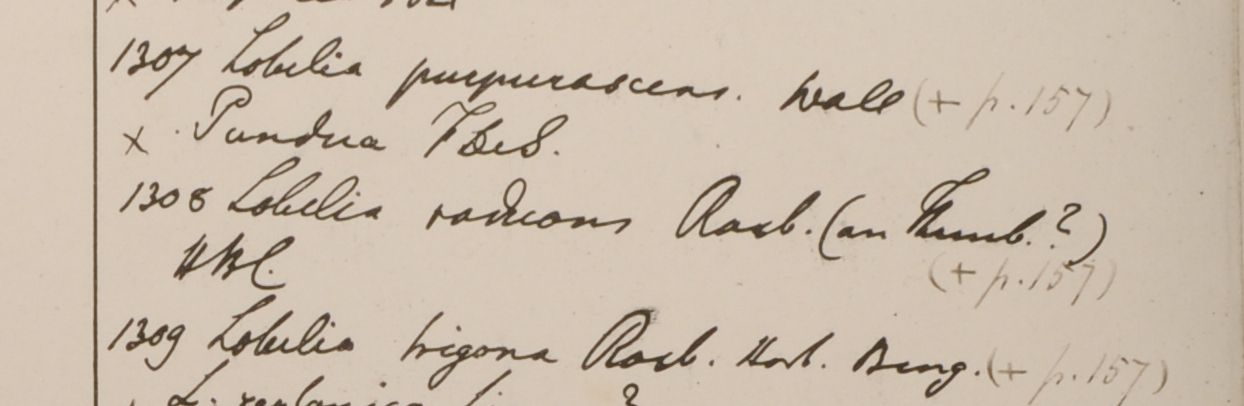 1307 Lobelia purpurascens. Wall (+ p. 157)
x Pundua F.De S.
1308 Lobelia radicans Roxb. (an Thunb.?)
HBC. (+ p. 157)
1309 Lobelia trigona Roxb. Hort. Beng. (+ p. 157)
L. zeylanica ?